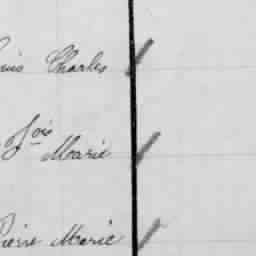 ouis Charles
Jois
Marie
Pierre Marie